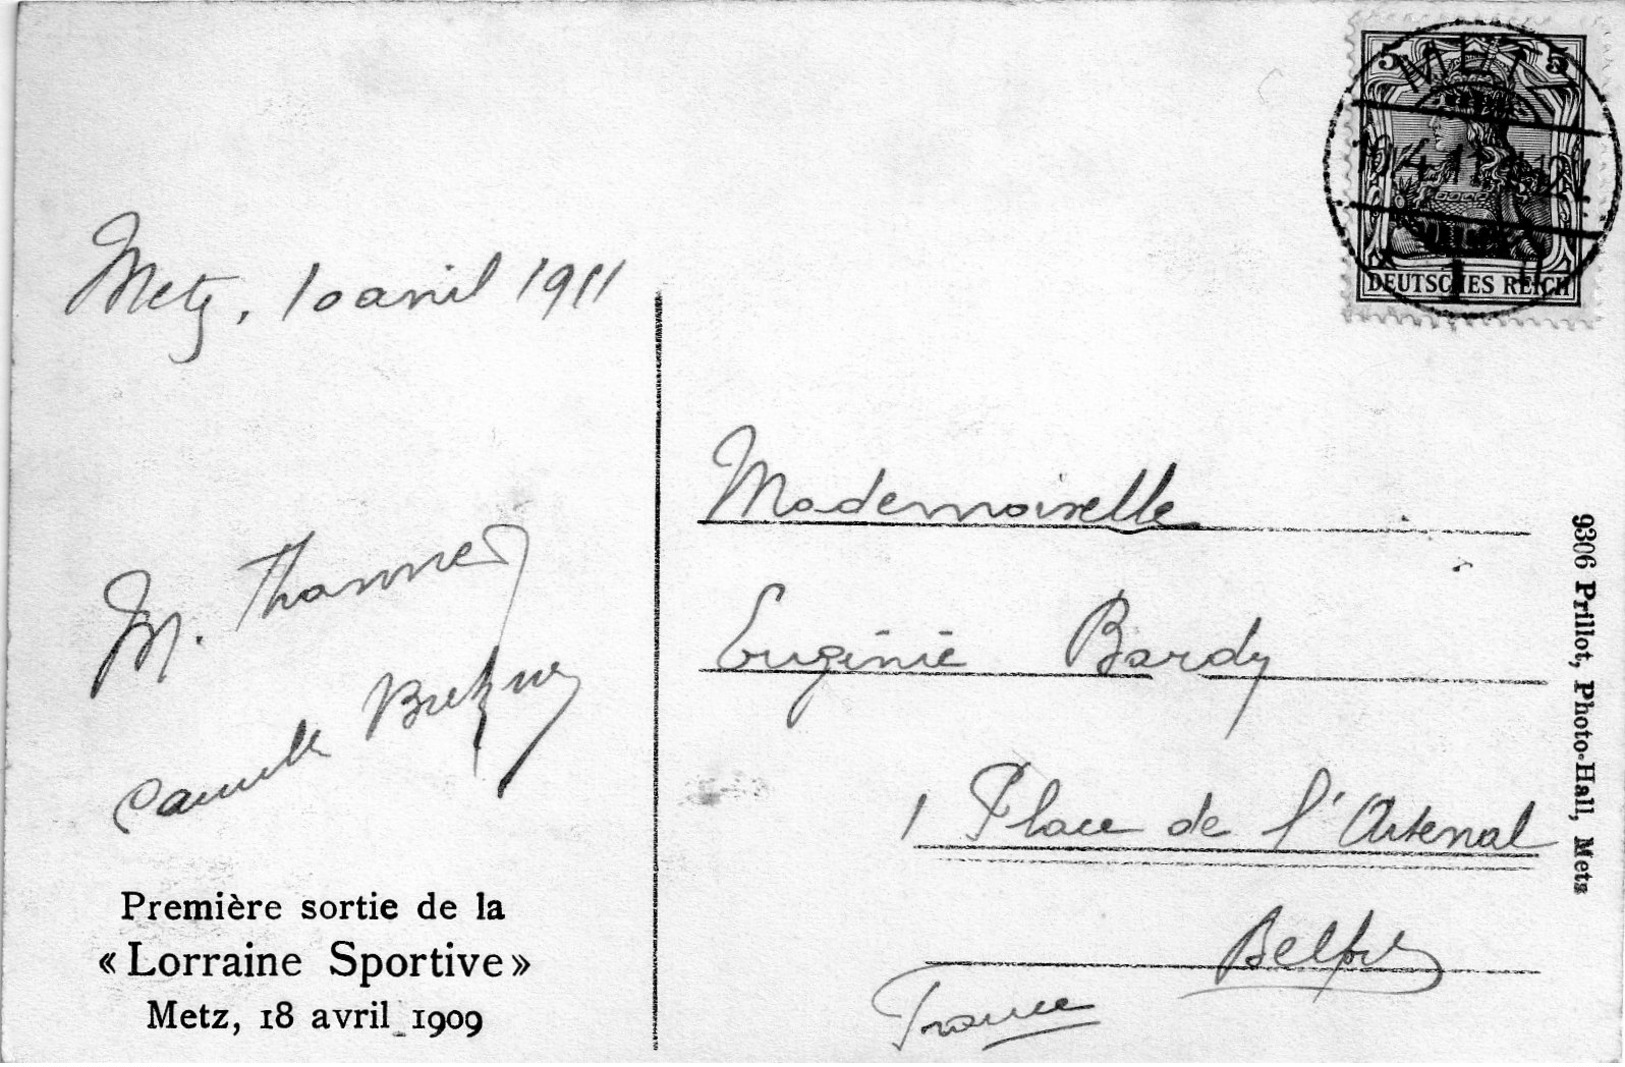 5 5
METZ
10.4.11.
1
DEUTSCHES REICH
Metz, 10 avril 1911
M.
Camille
Première sortie de la
« Lorraine Sportive »
Metz, 18 avril 1909
Mademoiselle
Eugénie Bardy
1 Place de l'Arsenal
Belfort
France
9306 Prillot, Photo-Hall, Metz